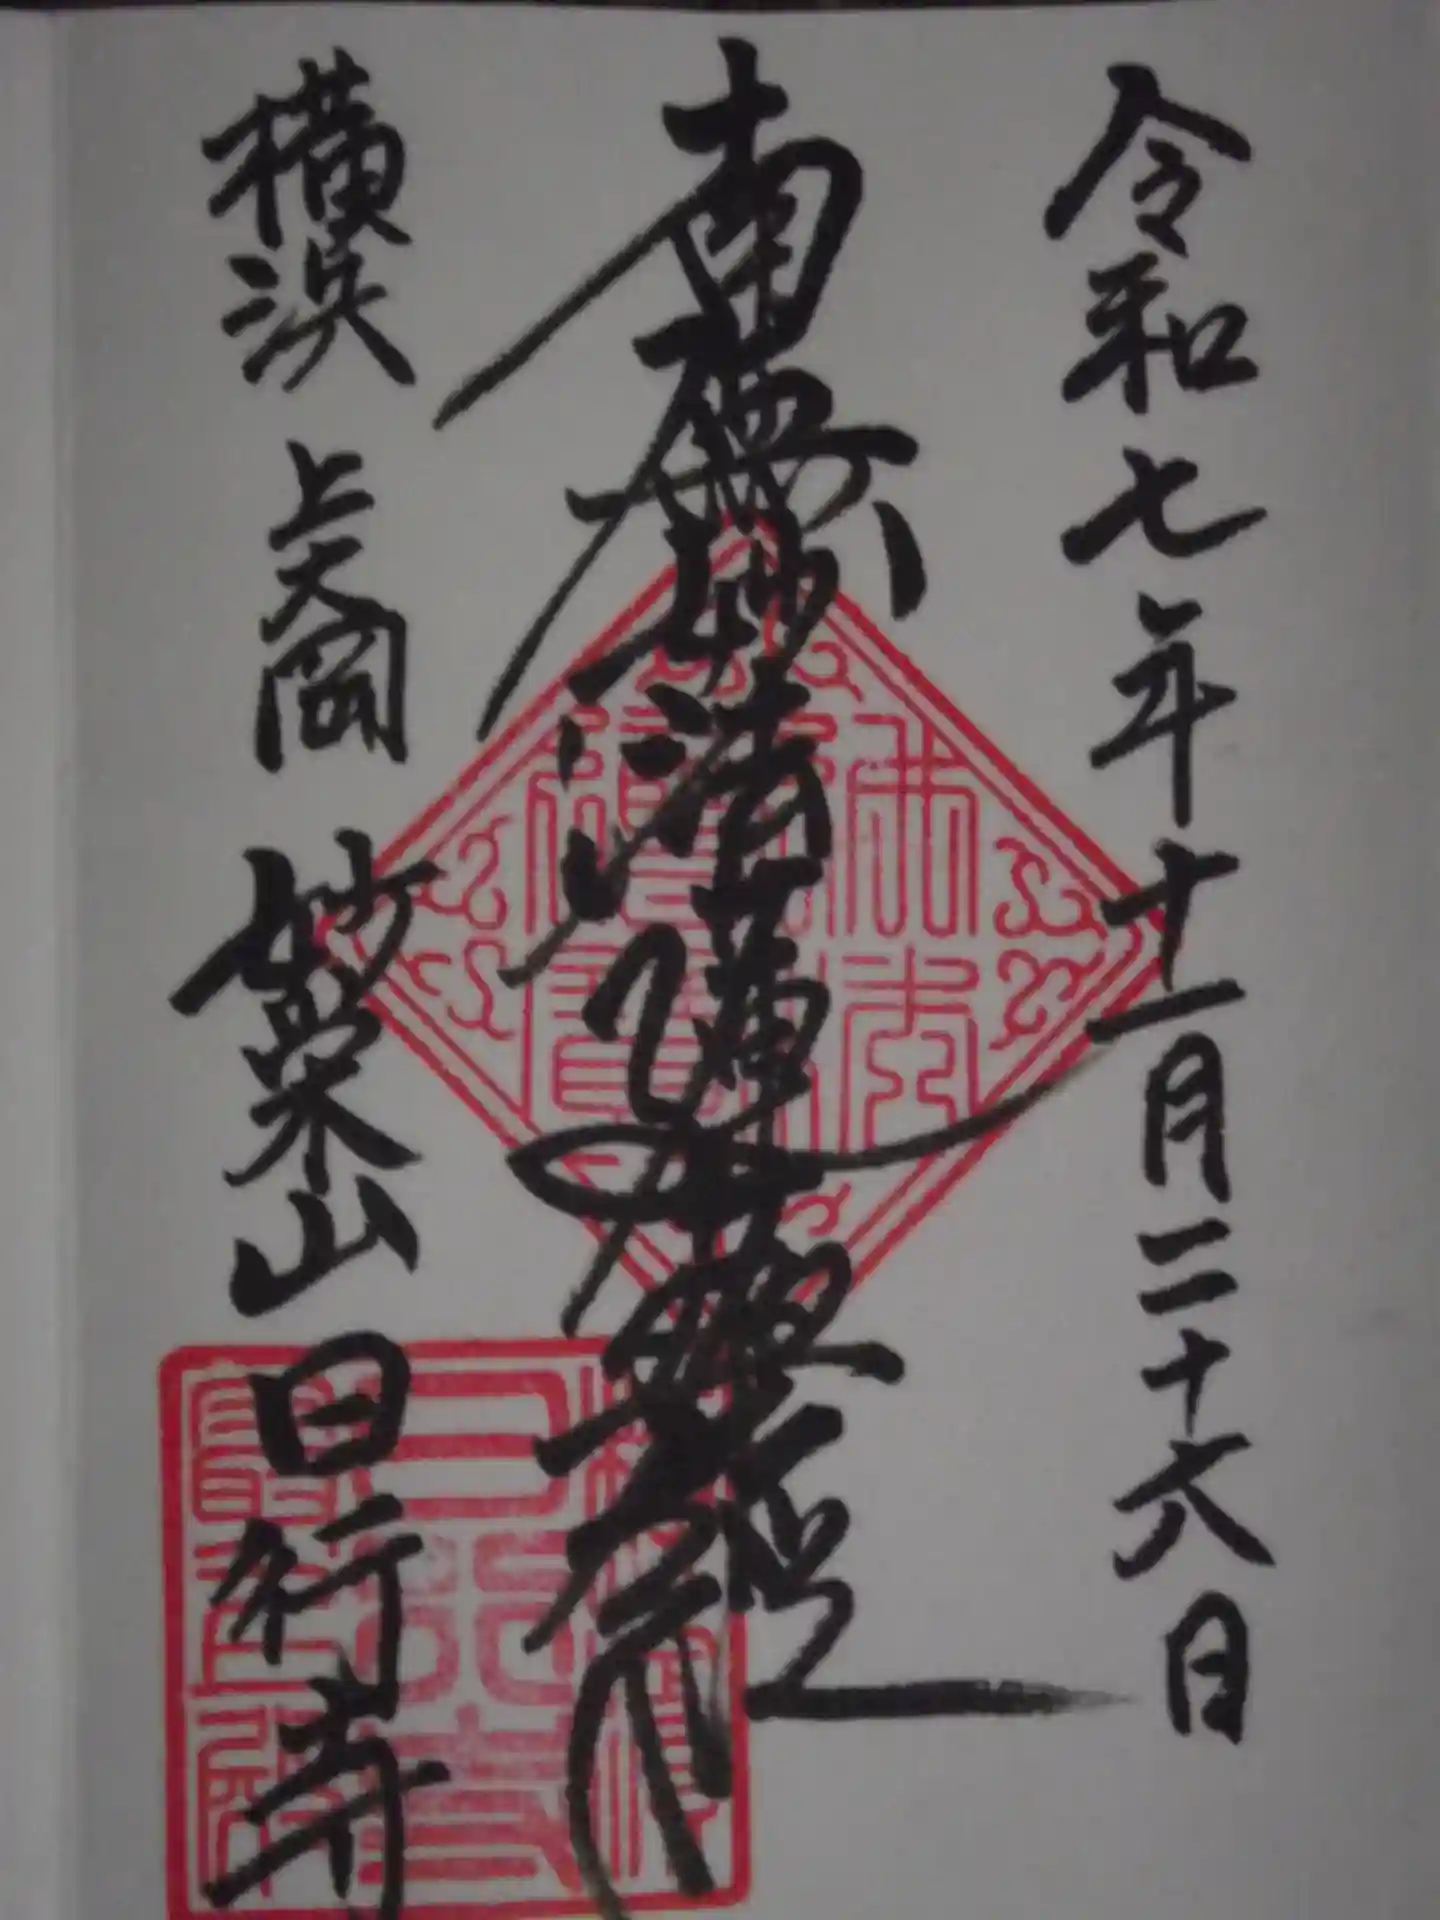 令和七年十一月二十六日
南無妙法蓮華経
横浜 上大岡 妙栄山日行寺